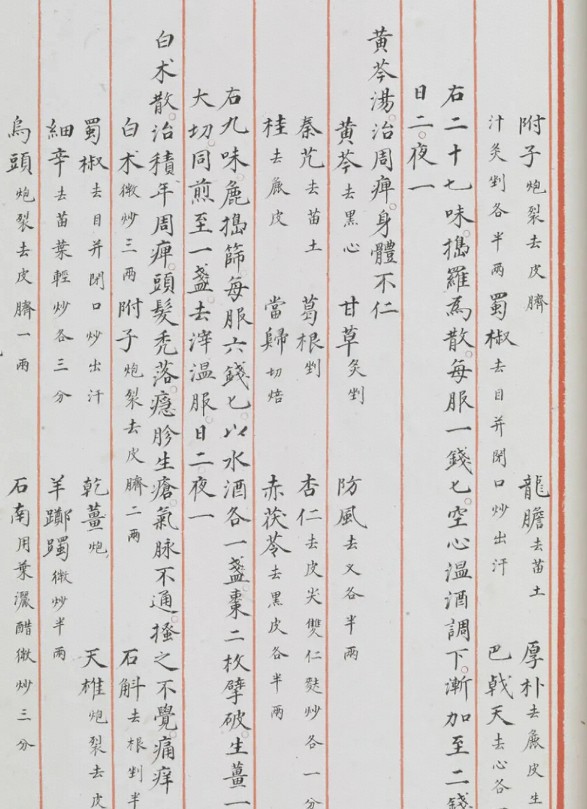 附子炮裂去皮臍 龍膽去苗土 厚朴去麁皮生
汁炙剉各半兩 蜀椒去目并閉口炒出汗 巴戟天去心各
右二十七味。搗羅為散。每服一錢匕。空心溫酒調下。漸加至二錢
日二。夜一
黃芩湯。治周痺。身體不仁
黃芩去黑心 甘草炙剉 防風去叉各半兩
秦艽去苗土 葛根剉 杏仁去皮尖雙仁麩炒各一分
桂去麁皮 當歸切焙 赤茯苓去黑皮各半兩
右九味。麁搗篩。每服六錢匕。以水酒各一盞。棗二枚擘破。生薑一
大切。同煎至一盞。去滓溫服。日二夜一
白朮散。治積年周痺。頭髮禿落。癮胗生瘡。氣脉不通。搔之不覺。痛痒
白朮微炒三兩 附子炮裂去皮臍二兩 石斛去根剉半
蜀椒去目并閉口炒出汗 乾薑炮 天雄炮裂去皮
細辛去苗葉輕炒各三分 羊躑躅微炒半兩
烏頭炮裂去皮臍一兩 石南用葉灑醋微炒三分